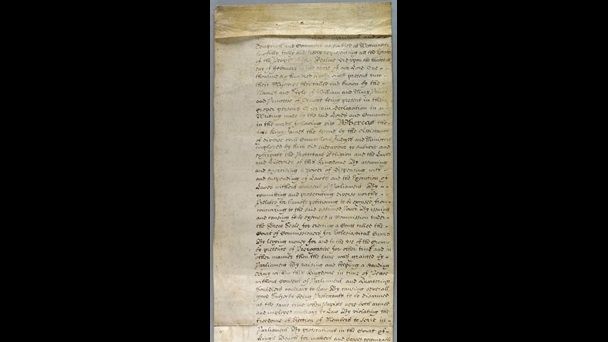 Temporall and Commons assembled at Westminster
lawfully fully and freely representing all the Estates
of the People of this Realme did upon the thirteenth
day of February in the yeare of our Lord One
thousand six hundred eighty eight present unto
their Majesties then called and known by the
Names and Stile of William and Mary Prince
and Princesse of Orange being present in their
proper persons A certain Declaration in
Writing made by the said Lords and Commons
in the words following viz Whereas the
late King James the second by the Assistance
of diverse evill Councellors Judges and Ministers
imployed by him did endeavour to subvert and
extirpate the Protestant Religion and the Lawes
and Liberties of this Kingdome By assuming
and exerciseing a power of Dispensing with
and suspending of Lawes and the Execution of
Lawes without consent of Parliament By
committing and prosecuting diverse worthy
Prelates for humbly petitioning to be excused from
concurring to the said assumed power By issuing
and causing to be executed a Commission under
the Great Seale for erecting a Court called the
Court of Commissioners for Ecclesiasticall Causes
By levying money for and to the use of the Crowne
by pretence of Prerogative for other time and in
other manner then the same was granted by
Parliament By raising and keeping a standing
army within this Kingdome in time of Peace
without consent of Parliament and Quartering
Souldiers contrary to Law By causing severall
good Subjects being Protestants to be disarmed
at the same time when Papists were both armed
and imployed contrary to Law By violating the
freedome of Election of Members to serve in
Parliament By prosecutions in the Court of
Kings Bench for matters and causes cognizable